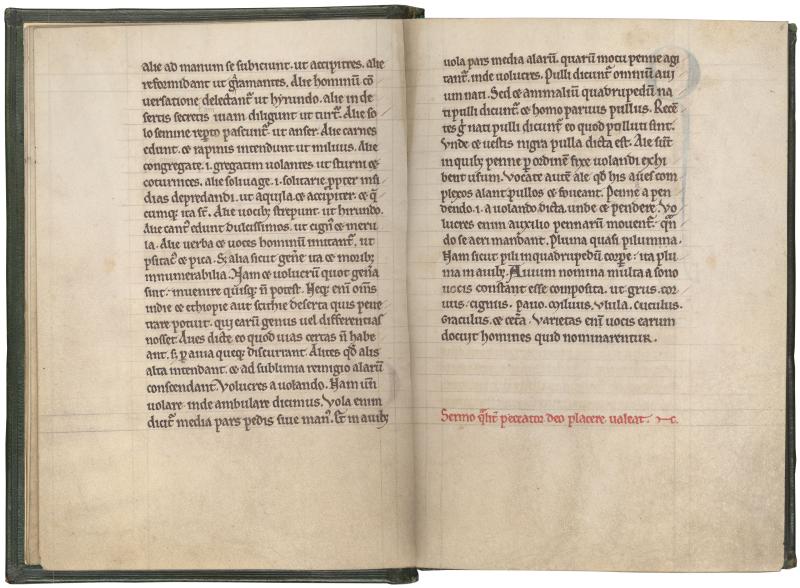 alie ad manum se subiciunt. ut accipitres. alie
reformidant ut g̃amantes. Alie hominũ cõ
uersatione delectant᷑ ut hyrundo. alie in de
sertis secretis uitam diligunt ut turt᷑. Alie so
lo semine reꝑto pascunt᷑ ut anser. Alie carnes
edunt. ⁊ rapinis intendunt ut miluus. Alie
congregate .i. gregatim uolantes ut sturni ⁊
coturnices. alie soliuage .i. solitarie ꝓpter insi
dias depredandi. ut aquila. ⁊ accipiter. ⁊ q̃
cumq; ita sũt. Alie uocib; strepunt ut hirundo.
Alie cant᷑ edunt dulcissimos. ut cign᷑ ⁊ meru
la. Alie uerba ⁊ uoces hominũ imitant᷑. ut
psitac᷑ ⁊ pica. S; alia sicut geñe ita ⁊ morib;
innumerabilia. Nam ⁊ uolucrũ quot geña
sint. inuenire q̃sq; ñ potest. Neq; eñi om̃s
indie ⁊ ethiopie aut scithie deserta quis pene
trare potuit. qui earũ genus uel differencias
nosset. Aues dicte eo quod uias certas ñ habe
ant. s; ꝑ auia queq; discurrant. Alites qđ alis
alta intendant. ⁊ ad sublimia remigio alarũ
conscendant. Volucres a uolando. Nam uñ
uolare inde ambulare dicimus. Vola enim
dicit᷑ media pars pedis siue man᷑. S; in auib;
uola pars media alarũ. quarũ motu penne agi
tant᷑. inde uolucres. Pulli dicunt᷑ omniũ aui
um nati. Sed ⁊ animaliũ quadrupedũ na
ti pulli dicunt᷑. ⁊ homo paruus pullus. Recẽ
tes g̃ nati pulli dicunt᷑ eo quod polluti sint.
Vnde ⁊ uestis nigra pulla dicta est. Ale sũt
in quib; penne ꝑ ordinem fixe uolandi exhi
bent usum. Vocate autẽ ale qđ his aues com
plexos alant pullos ⁊ foueant. Penne a pen
dendo .i. a uolando dicta. unde ⁊ pendere. Vo
lucres enim auxilio pennarũ mouent᷑. q̃n
do se aeri mandant. Pluma quasi piluma.
Nam sicut pili in quadrupedũ corꝑe. ita plu
ma in auib;. Auium nomina multa a sono
uocis constant esse composita. ut grus. cor
uus. cignus. pauo. miluus. Vlula. cuculus.
Graculus. ⁊ cet᷑a. Varietas eñi uocis earum
docuit homines quid nominarentur.
Sermo q̃lit᷑ peccator deo placere ualeat.